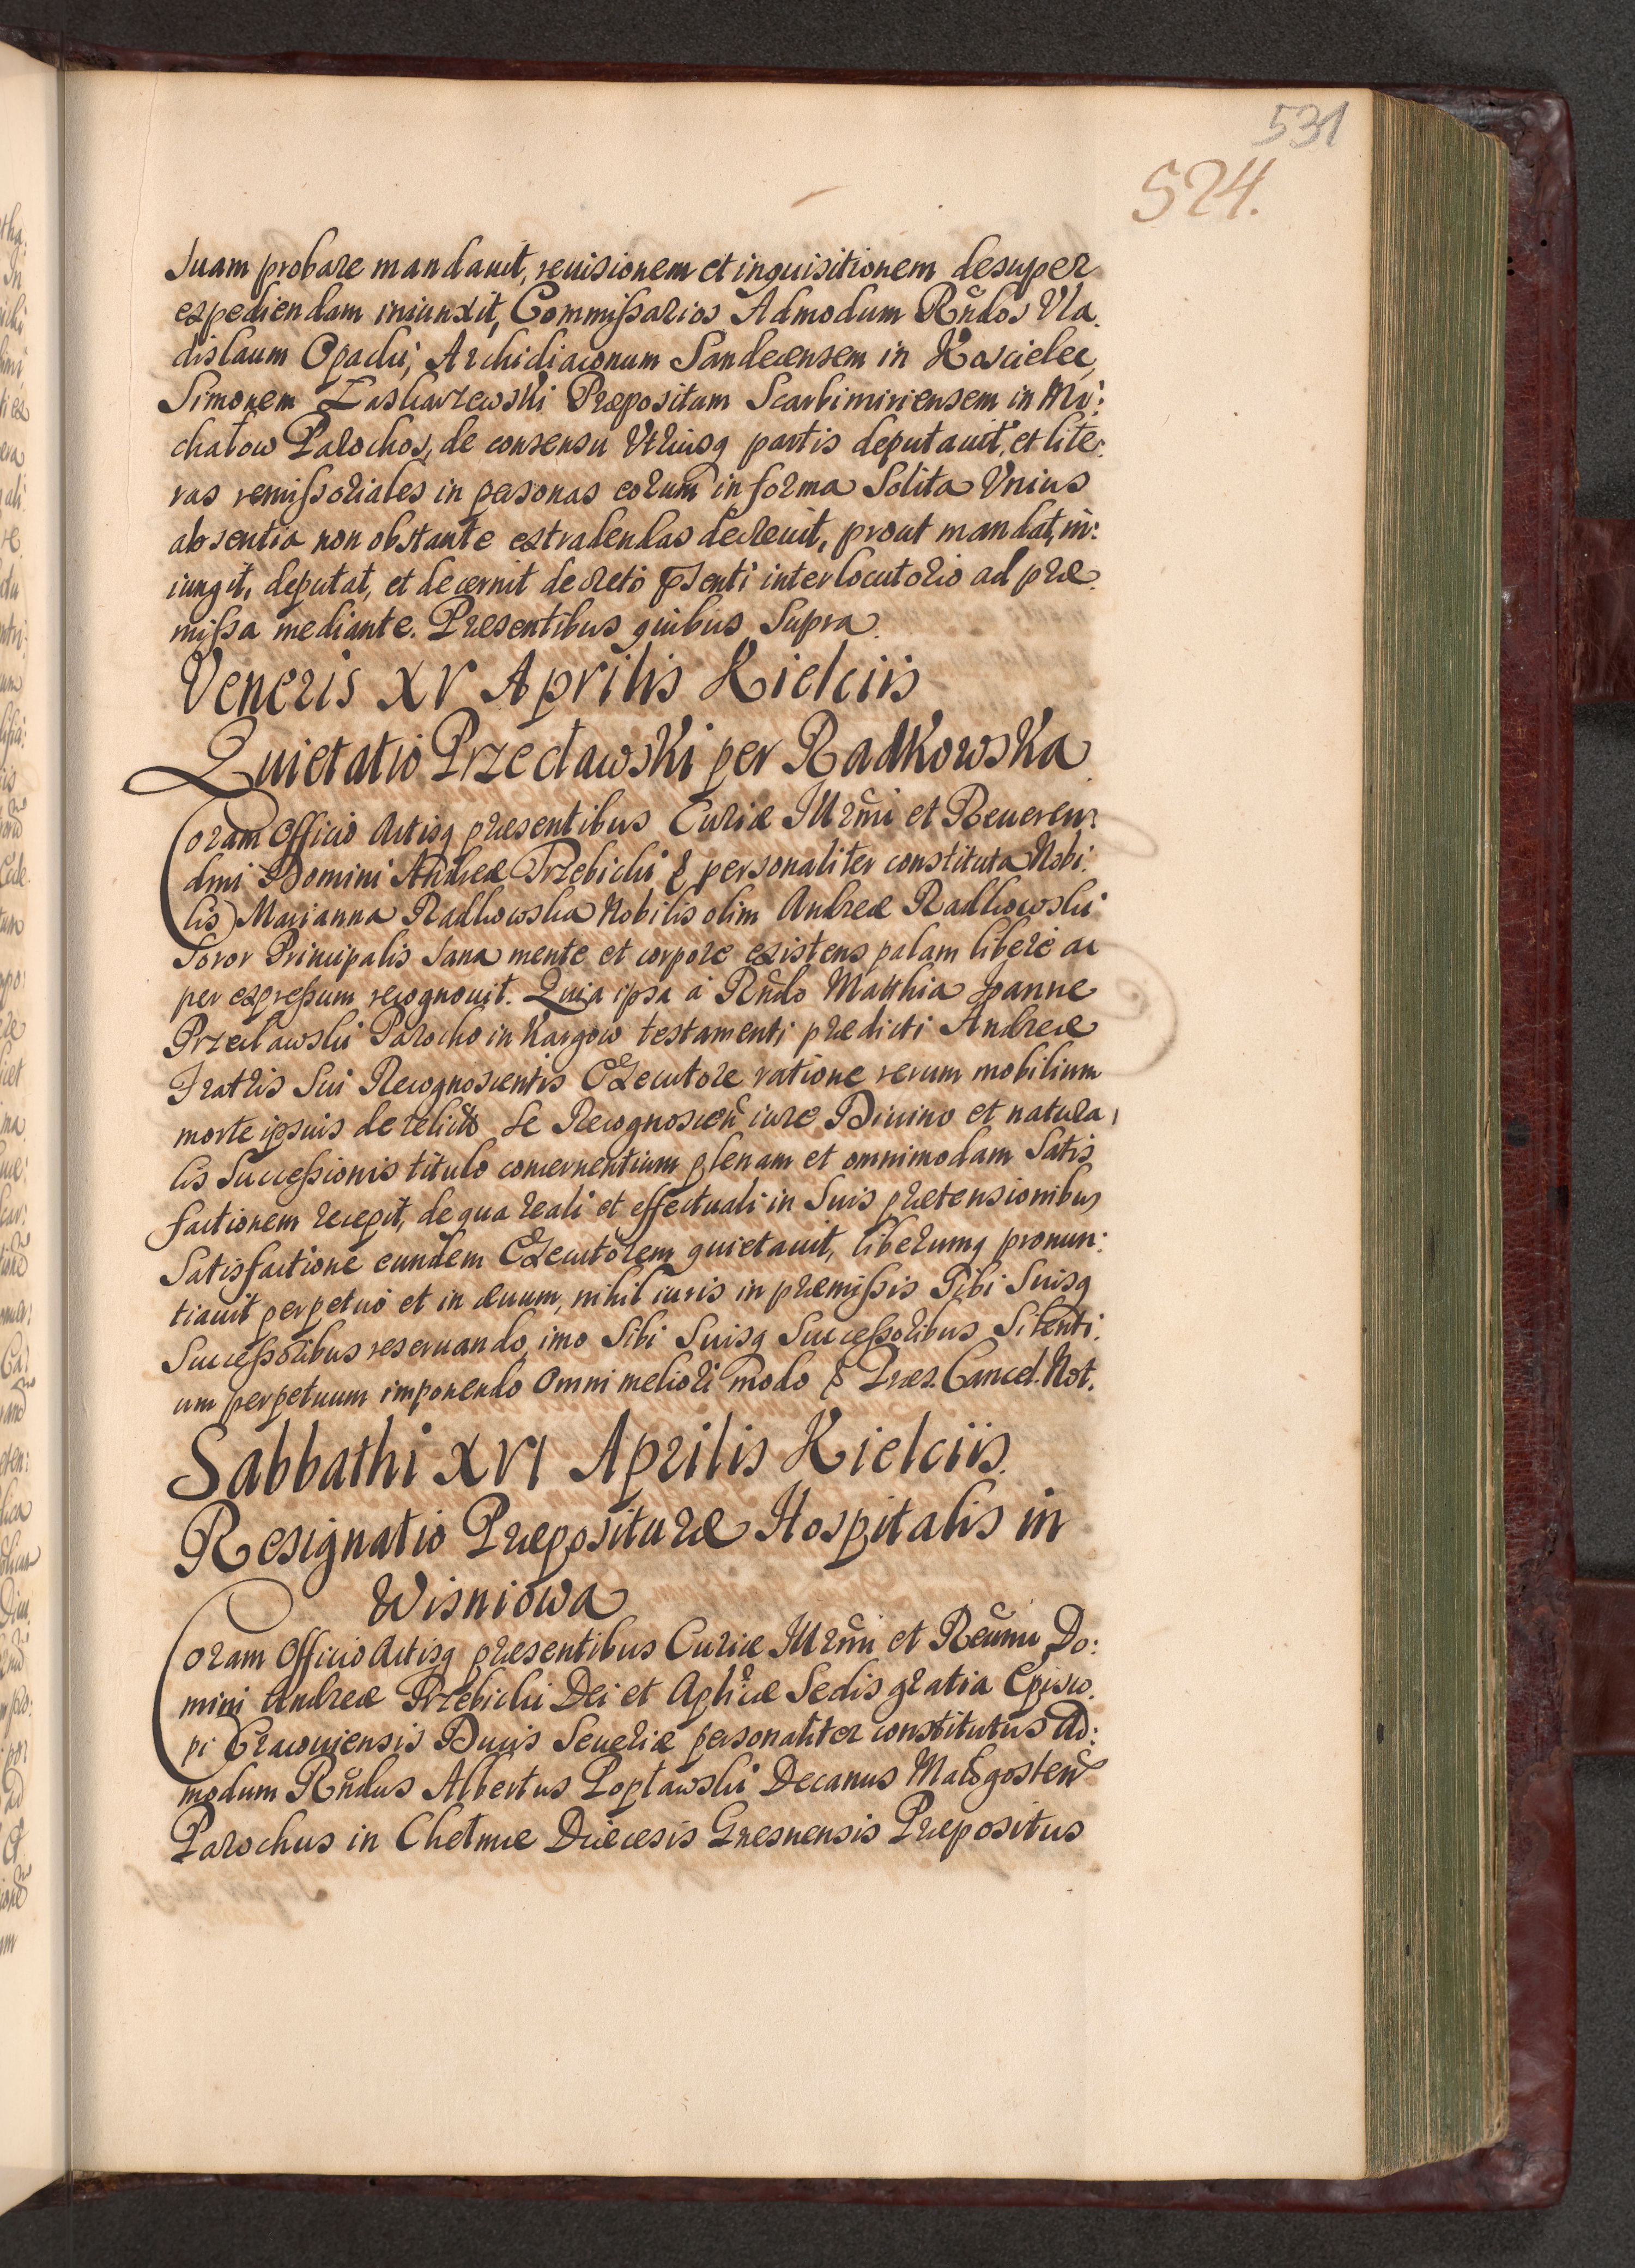 531
524.
suam probare mandauit, reuisionem et inquisitionem desuper
expediendam iniunxit, Commissarios Admodum Rñdos Vla.
dislaum Opacki, Archidiaconum Sandecensem in Koscielec,
Simonem Zaskarzewski Præpositum Scarbimiriensem in Mi:
chałow Parochos, de consensu Vtriusq partis deputauit, et lite:
ras remissoriales in personas eorum in forma Solita Vnius
absentia non obstante extradendas decreuit, prout mandat, in:
iungit, deputat, et decernit decreto pñsenti interlocutorio ad præ.
missa mediante. Præsentibus quibus Supra.
Veneris XV Aprilis Kielciis
Quietatio Przecławski per Radkowska
Coram Officio Actisq præsentibus Curiæ Illrm̃i et Reueren:
dmi Domini Andreæ Trzebicki & personaliter constituta Nobi.
lis Marianna Radkowska Nobilis olim Andreæ Radkowski
Soror Principalis sana mente et corpore existens palam libere ac
per expressum recognouit. Quia ipsa á Rñdo Matthia Joanne
Przecławski Parocho in Kargow testamenti prædicti Andreæ
Fratris Sui Recognoscentis Executore ratione rerum mobilium
morte ipsius derelict se Recognosceñ iure Diuino et natura,
lis Successionis titulo concernentium plenam et omnimodam Satis
factionem recepit, de qua reali et effectuali in Suis prætensionibus
Satisfactione eundem Executorem quietauit, liberumq pronun:
tiauit perpetuó et in æuum, nihil iuris in præmissis Sibi Suisq
Successoribus reseruando, imo Sibi Suisq Successoribus Silenti:
um perpetuum imponendo Omni meliori modo & Præs. Cancel. Not.
Sabbathi XVI Aprilis Kielciis.
Resignatio Præposituræ Hospitalis in
Wisniowa
Coram Officio Actisq præsentibus Curiæ Illrm̃i et Reũmi Do:
mini Andreæ Trzebicki Dei et Aplicæ Sedis gratia Episco.
pi Cracouiensis Ducis Seueriæ personaliter constitutus Ad:
modum Rñdus Albertus Popławski Decanus Małogosteñ
Parochus in Chełmce Diæcesis Gnesnensis Præpositus